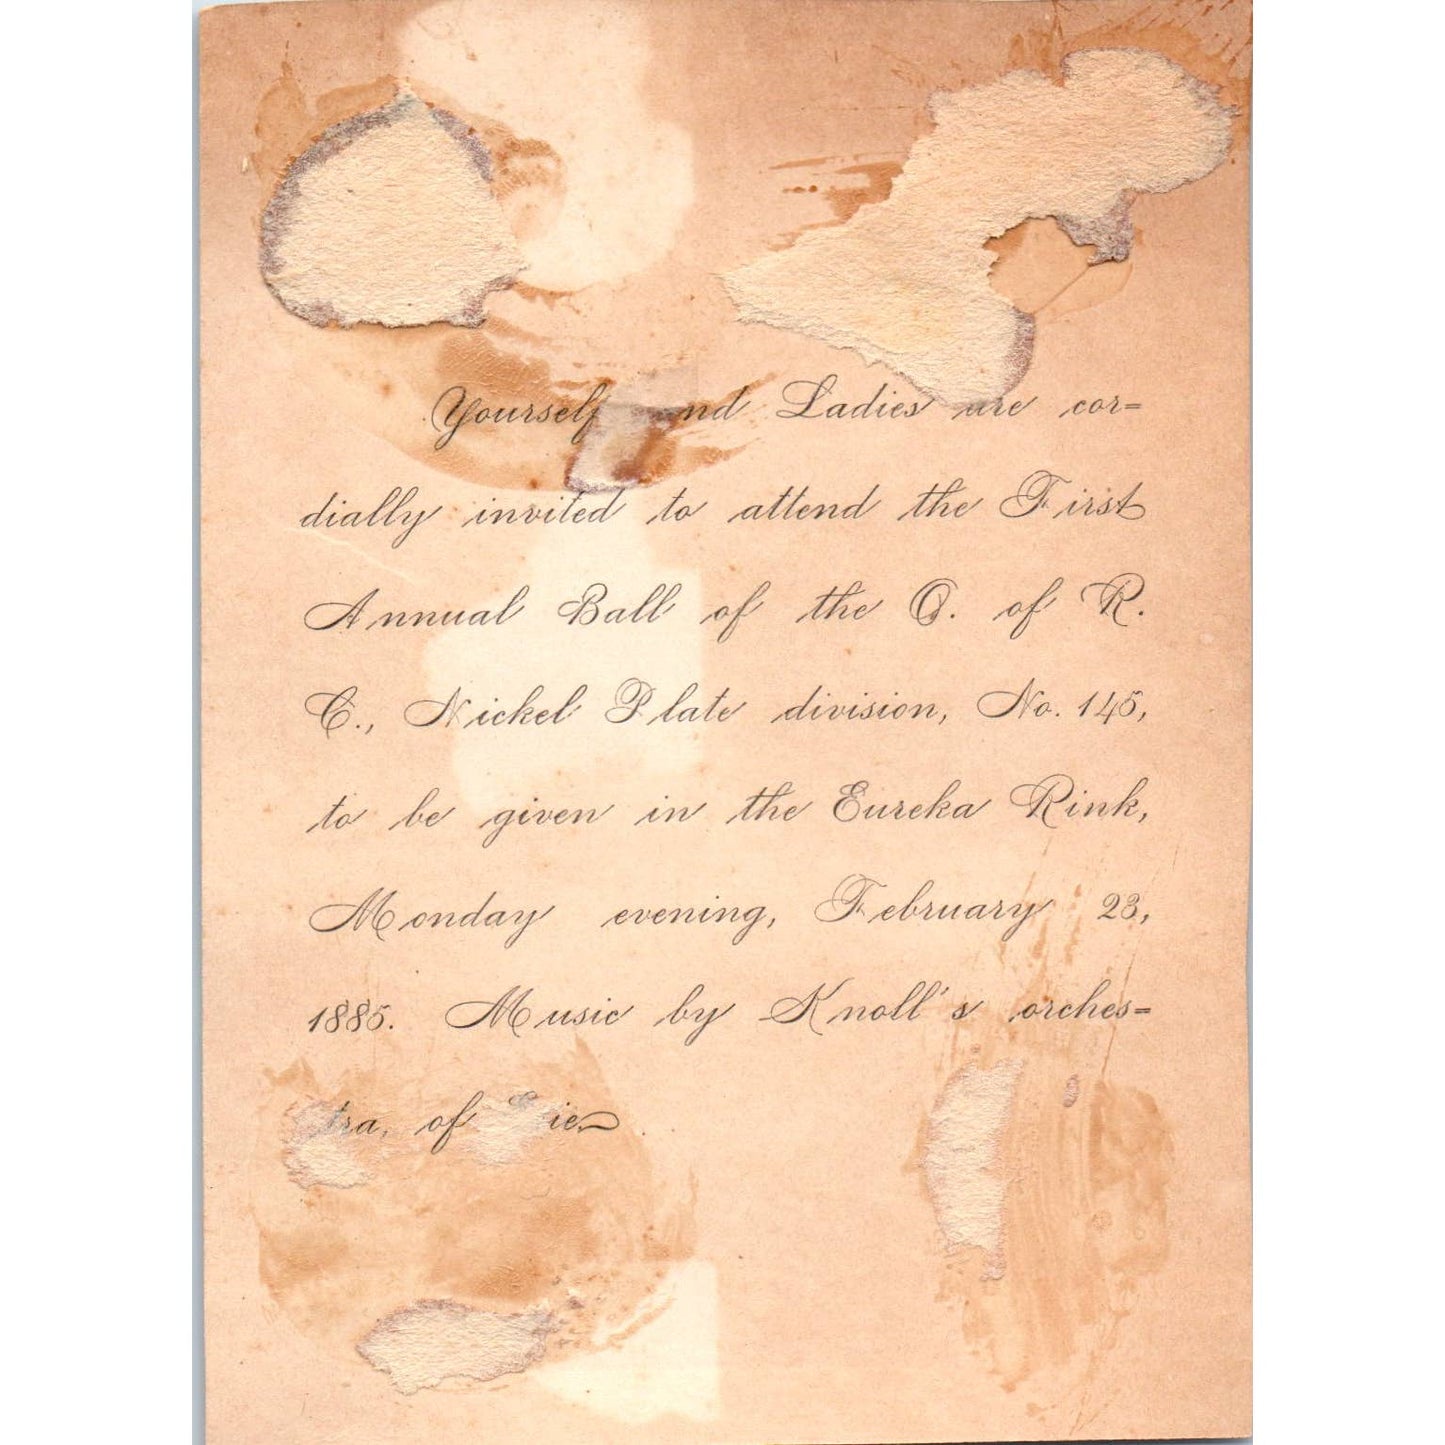 Yourself and Ladies are cor=
dially invited to attend the First
Annual Ball of the O. of R.
C., Nickel Plate division, No. 145,
to be given in the Eureka Rink,
Monday evening, February 23,
1885. Music by Knoll's orches=
tra, of Erie.